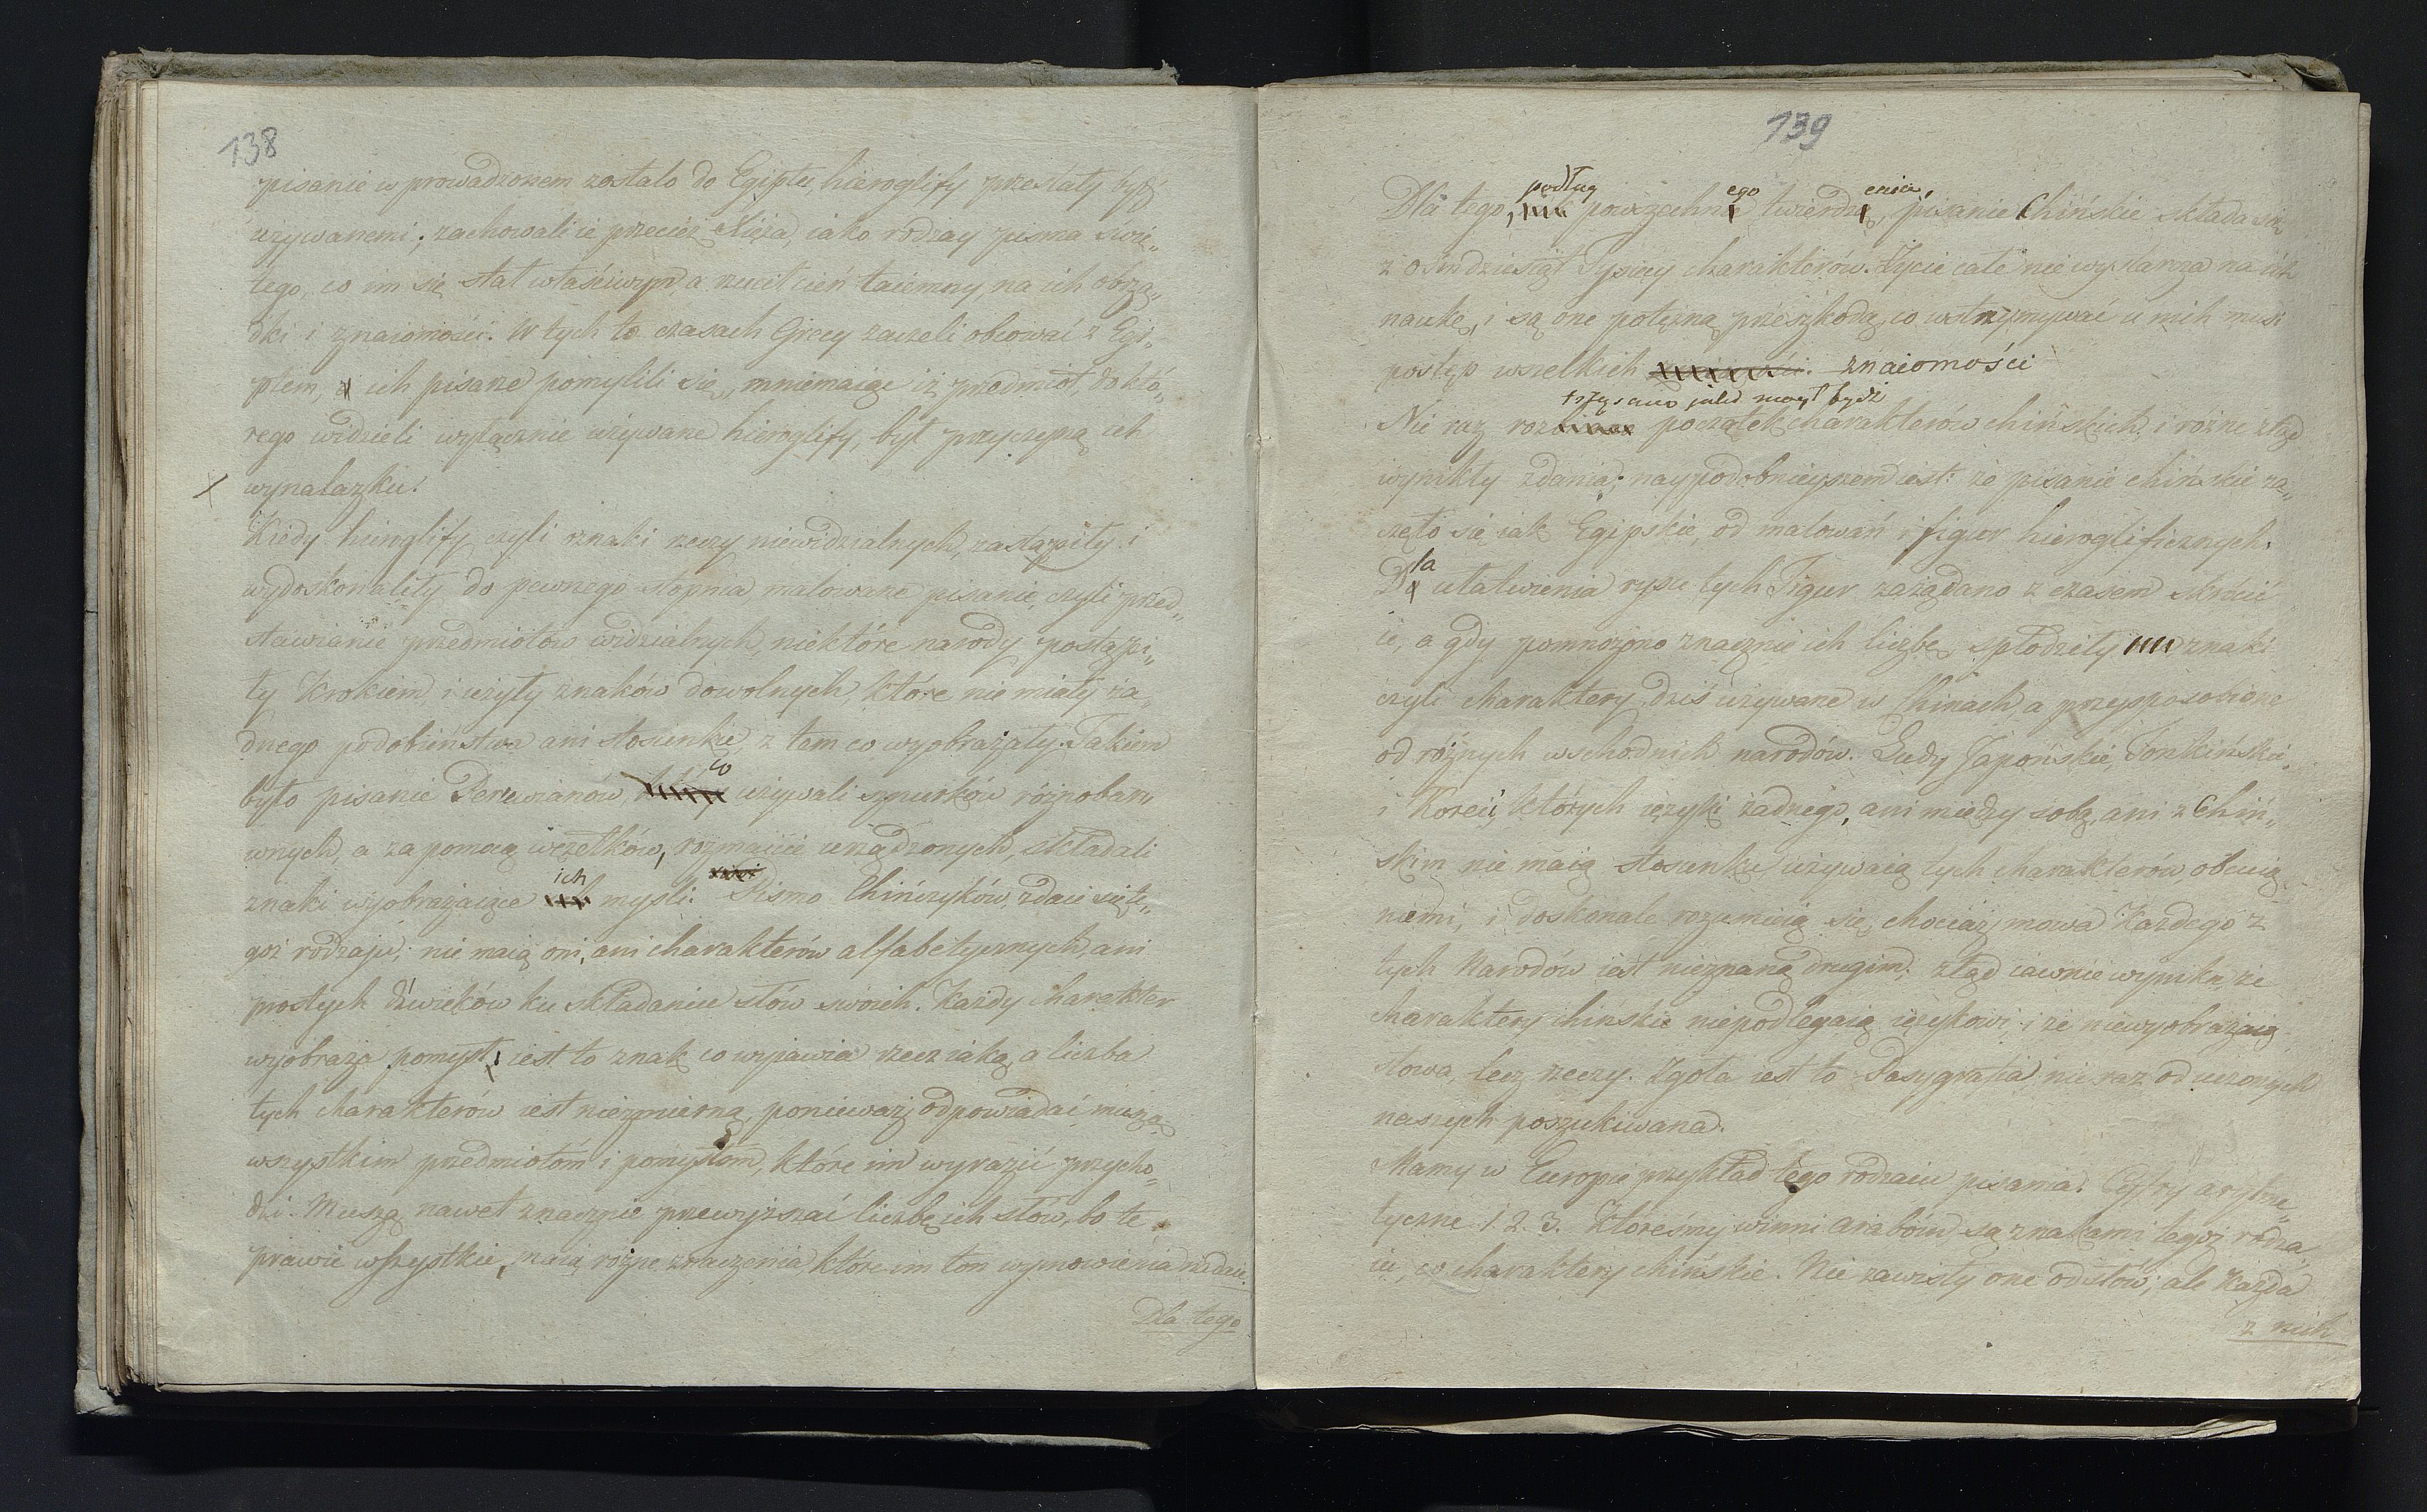 138
pisanie w prowadzonem zostało do Egiptu, hieroglify przestały być
używanemi; zachowali ie przecież Xięża, iako rodzay pisma świę„
tego, co im się stał właściwym, a rzucił cień taiemny na ich obrzą„
dki i znaiomości. W tych to czasach Grecy zaczeli obcować z Egi„
ptem, ich pisanie pomylili się, mniemaiąc iż przedmiot, do któ„
rego widzieli wyłącznie używane hieroglify, był przyczyną ich
wynalazku.
Kiedy hieroglify czyli znaki rzeczy niewidzialnych, zastąpiły i
wydoskonaliły do pewnego stopnia malowane pisanie, czyli przed„
stawianie przedmiotów widzialnych, niektóre narody postąpi„
ły krokiem, i użyły znaków dowolnych, które nie miały ża„
dnego podobieństwa ani stosunku, z tem co wyobrażały. Takiem
było pisanie Peruwianów, co używali sznurków różnobar„
wnych, a za pomocą węzełków, rozmaicie urządzonych, składali
znaki wyobrażaiące ich myśli. Pismo Chińczyków, zdaie się te„
goż rodzaju; nie maią oni, ani charakterów alfabetycznych, ani
prostych dźwięków ku składaniu słów swoich. Każdy charakter
wyobraża pomysł; iest to znak co wyiawia rzecz iaką, a liczba
tych charakterów iest niezmierną, ponieważ odpowiadać muszą
wszystkim przedmiotóm i pomysłom, które im wyrazić przycho„
dzi. Muszą nawet znacznie przewyższać liczbę ich słów, bo te
prawie wszystkie, maią różne znaczenia, które im ton wymowienia nadaie.
Dla tego
139
Dla tego, podług powszechnego twierdzenia, pisanie Chińskie składa się
z ośmdziesiąt Tysięcy charakterów. Życie całe nie wystarcza na ich
naukę, i są one potężną przeszkodą, co wstrzymywać u nich musi
postęp wszelkich znaiomości
Nie raz roztrząsano jaki mógł bydź początek charakterów chińskich, i różne ztąd
wynikły zdania; naypodobnieyszem iest: że pisanie chińskie za„
częło się iak Egipskie, od malowań i figur hieroglificznych.
Dla ułatwienia rysu tych Figur zażądano z czasem skrócić
ie, a gdy pomnożono znacznie ich liczbę, spłodziły znaki
czyli charaktery, dziś używane w Chinach, a przysposobione
od różnych wschodnich narodów. Ludy Japońskie, Tonkińskie,
i Koreii, których ięzyki żadnego, ani między sobą, ani z Chiń„
skim nie maią stosunku, używaią tych charakterów, obcuią
niemi, i doskonale rozumieią się, chociaż mowa każdego z
tych Narodów iest nieznaną drugim; ztąd iawnie wynika, że
charaktery chińskie niepodlegaią ięzykowi, i że niewyobrażaią
słowa, lecz rzeczy. Zgoła iest to Pasygrafia nie raz od uczonych
naszych poszukiwana.
Mamy w Europie przykład tego rodzaiu pisania. Cyfry arytme„
tyczne 1. 2. 3. któreśmy winni Arabóm są znakami tegoż rodza„
iu, co charaktery chińskie. Nie zawisły one od słów; ale każda
z nich